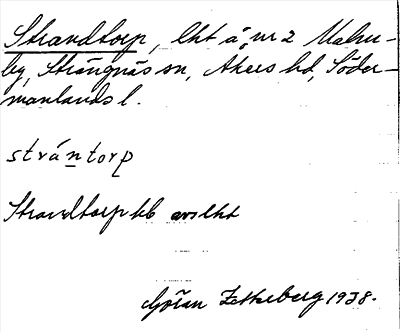 Strandtorp, lht å nr 2 Malm-
by, Strängnäs sn, Åkers hd, Söder-
manlands l.
strántorp
Strandtorp kb avs lht
Göran Zetterberg 1938.